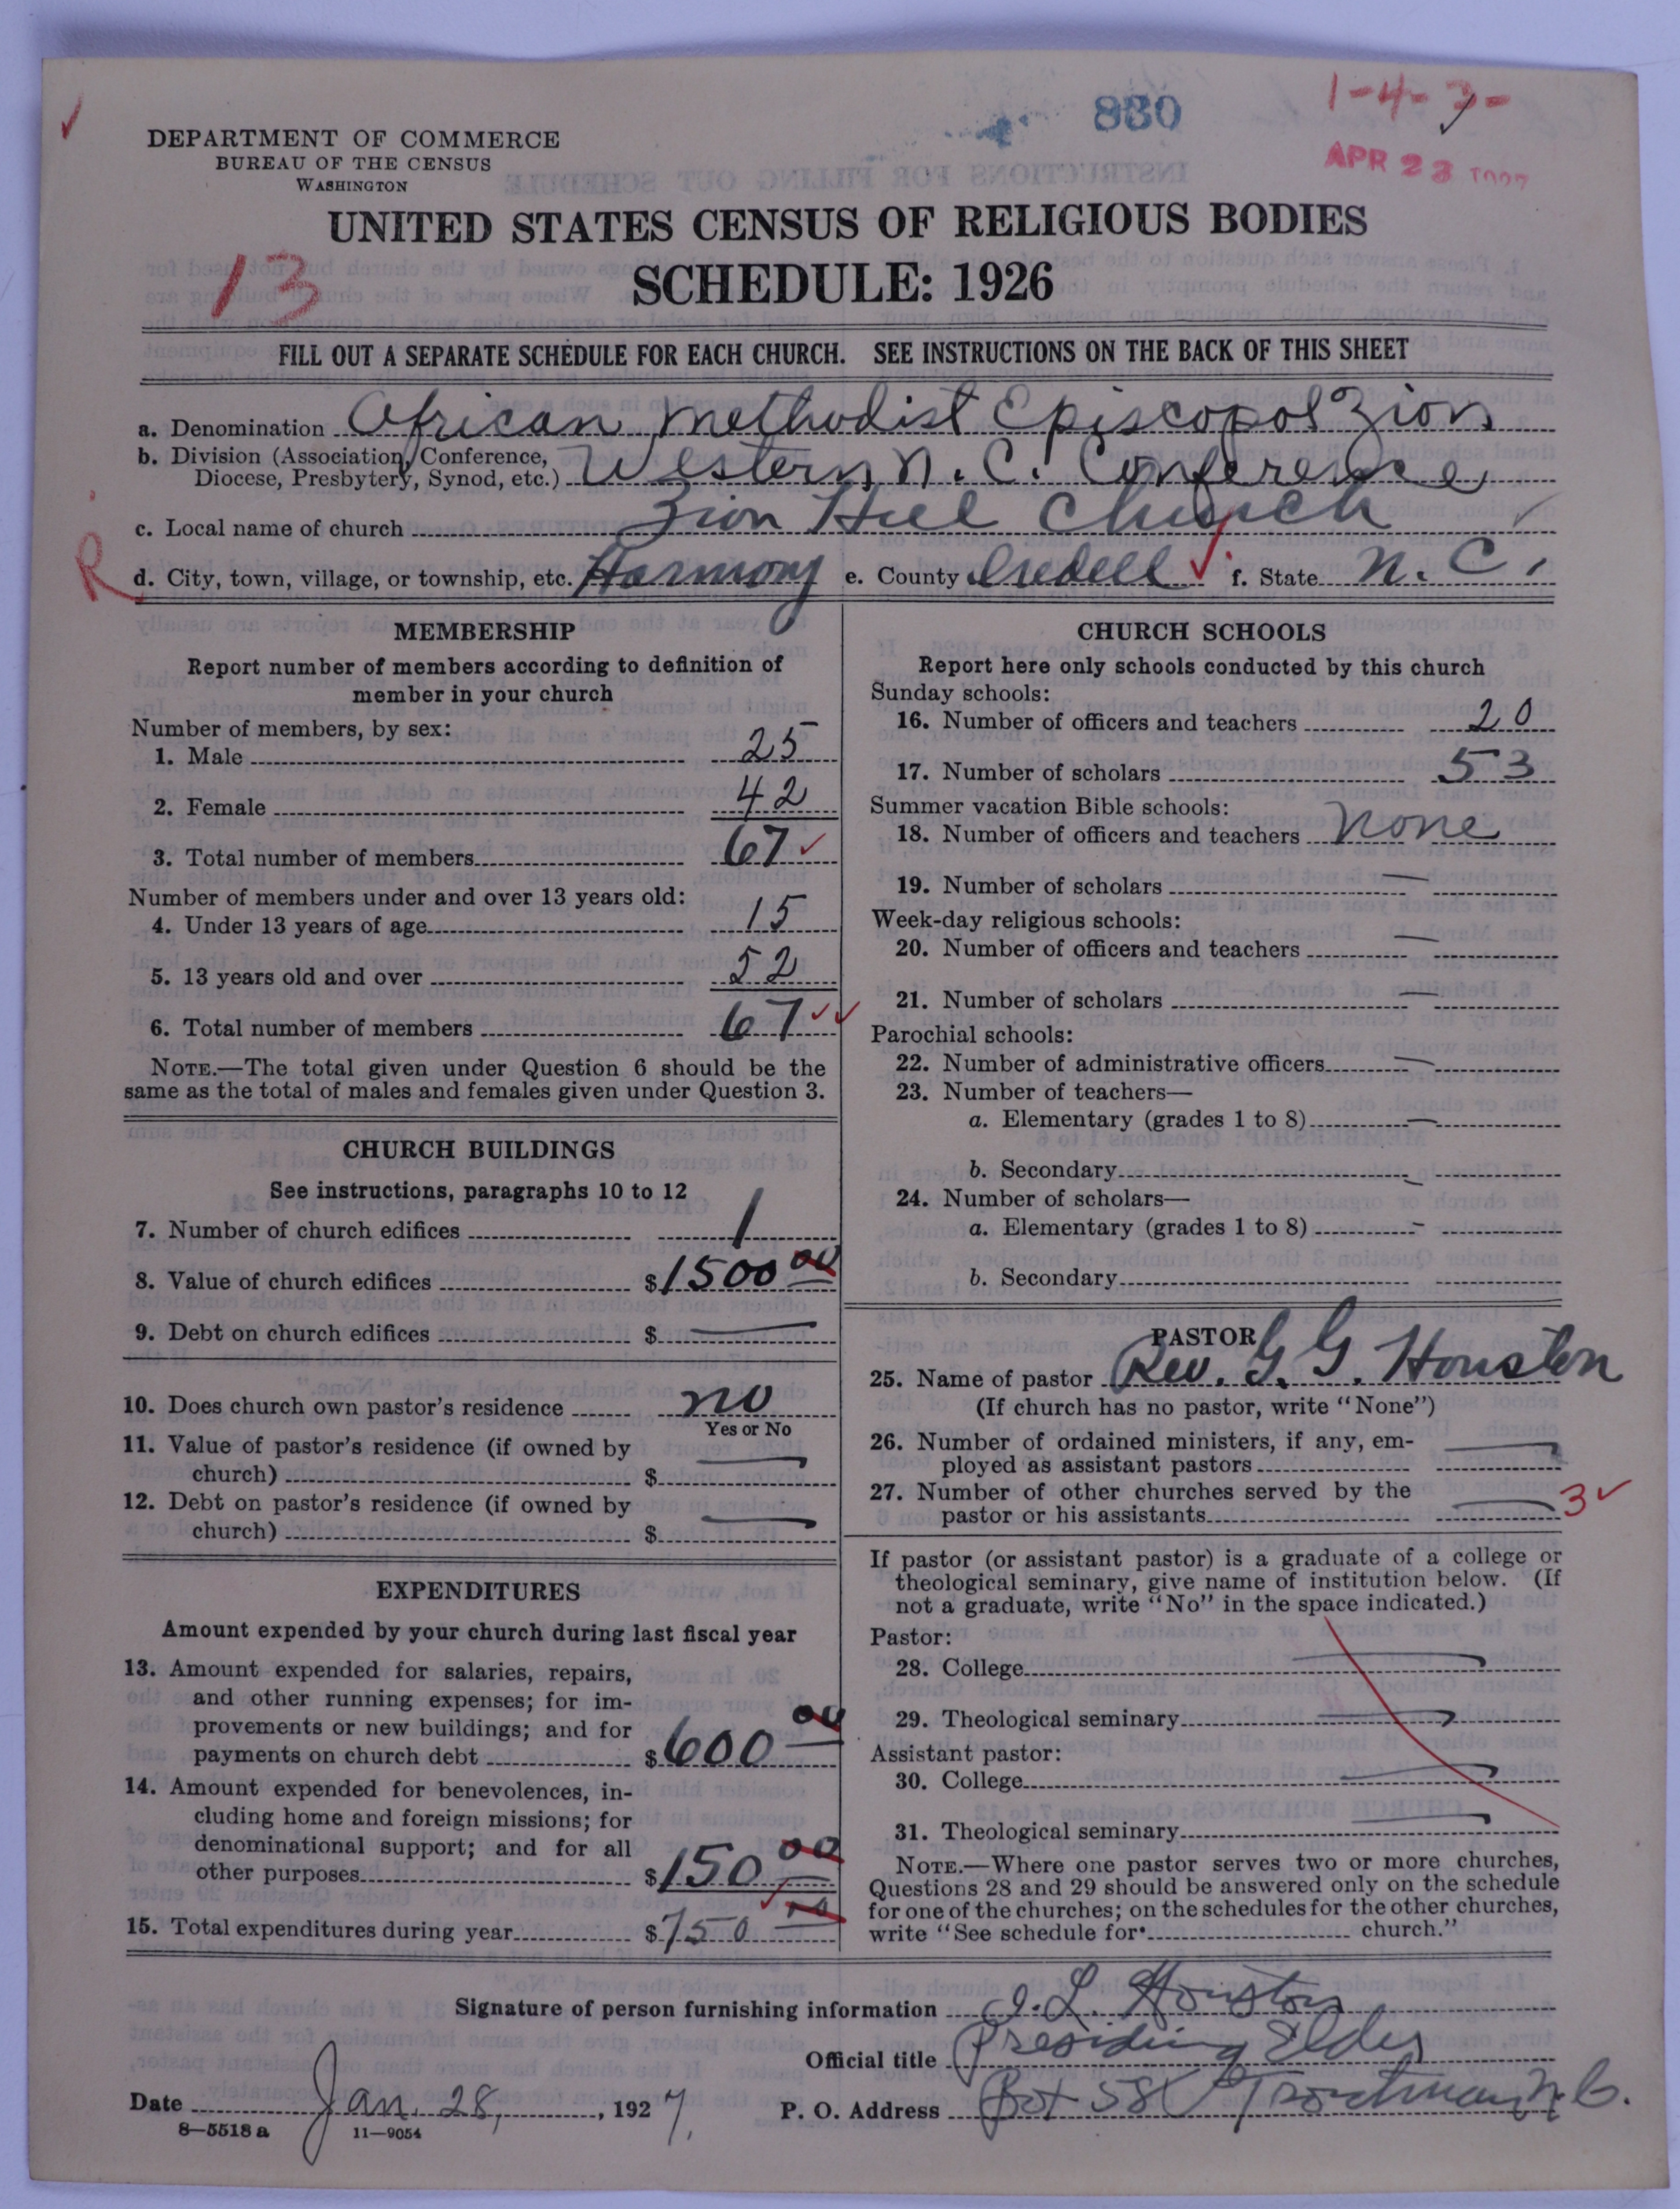 830
1-4-3-
APR 23 1927
DEPARTMENT OF COMMERCE
BUREAU OF THE CENSUS
WASHINGTON
UNITED STATES CENSUS OF RELIGIOUS BODIES
13
SCHEDULE: 1926
FILL OUT A SEPARATE SCHEDULE FOR EACH CHURCH. SEE INSTRUCTIONS ON THE BACK OF THIS SHEET
a. Denomination African Methodist Episcopol Zion
b. Division (Association, Conference, Diocese, Presbytery, Synod, etc.) Western N. C. Conference
c. Local name of church Zion Hill Church
R
d. City, town, village, or township, etc. Harmony e. County Iredell f. State N. C.
MEMBERSHIP
Report number of members according to definition of
member in your church
Number of members, by sex:
1. Male 25
2. Female 42
3. Total number of members 67
Number of members under and over 13 years old:
4. Under 13 years of age 15
5. 13 years old and over 52
6. Total number of members 67
NOTE.—The total given under Question 6 should be the
same as the total of males and females given under Question 3.
CHURCH BUILDINGS
See instructions, paragraphs 10 to 12
7. Number of church edifices 1
8. Value of church edifices $1500 00
9. Debt on church edifices $ —
10. Does church own pastor's residence no
Yes or No
11. Value of pastor's residence (if owned by
church) $ —
12. Debt on pastor's residence (if owned by
church) $ —
EXPENDITURES
Amount expended by your church during last fiscal year
13. Amount expended for salaries, repairs,
and other running expenses; for im-
provements or new buildings; and for
payments on church debt $600 00
14. Amount expended for benevolences, in-
cluding home and foreign missions; for
denominational support; and for all
other purposes $150 00
15. Total expenditures during year $750 00
CHURCH SCHOOLS
Report here only schools conducted by this church
Sunday schools:
16. Number of officers and teachers 20
17. Number of scholars 53
Summer vacation Bible schools:
18. Number of officers and teachers None
19. Number of scholars —
Week-day religious schools:
20. Number of officers and teachers —
21. Number of scholars —
Parochial schools:
22. Number of administrative officers —
23. Number of teachers—
a. Elementary (grades 1 to 8) —
b. Secondary —
24. Number of scholars—
a. Elementary (grades 1 to 8) -
b. Secondary
PASTOR
25. Name of pastor Rev. G. G. Houston
(If church has no pastor, write "None")
26. Number of ordained ministers, if any, em-
ployed as assistant pastors —
27. Number of other churches served by the
pastor or his assistants — 3
If pastor (or assistant pastor) is a graduate of a college or
theological seminary, give name of institution below. (If
not a graduate, write "No" in the space indicated.)
Pastor:
28. College —
29. Theological seminary —
Assistant pastor:
30. College —
31. Theological seminary —
NOTE.—Where one pastor serves two or more churches,
Questions 28 and 29 should be answered only on the schedule
for one of the churches; on the schedules for the other churches,
write "See schedule for church."
Signature of person furnishing information J. L. Houston
Official title Presiding Elder
Date Jan. 28, 1927. P. O. Address Box 58 Troutman N. C.
8—5518 a 11—9054